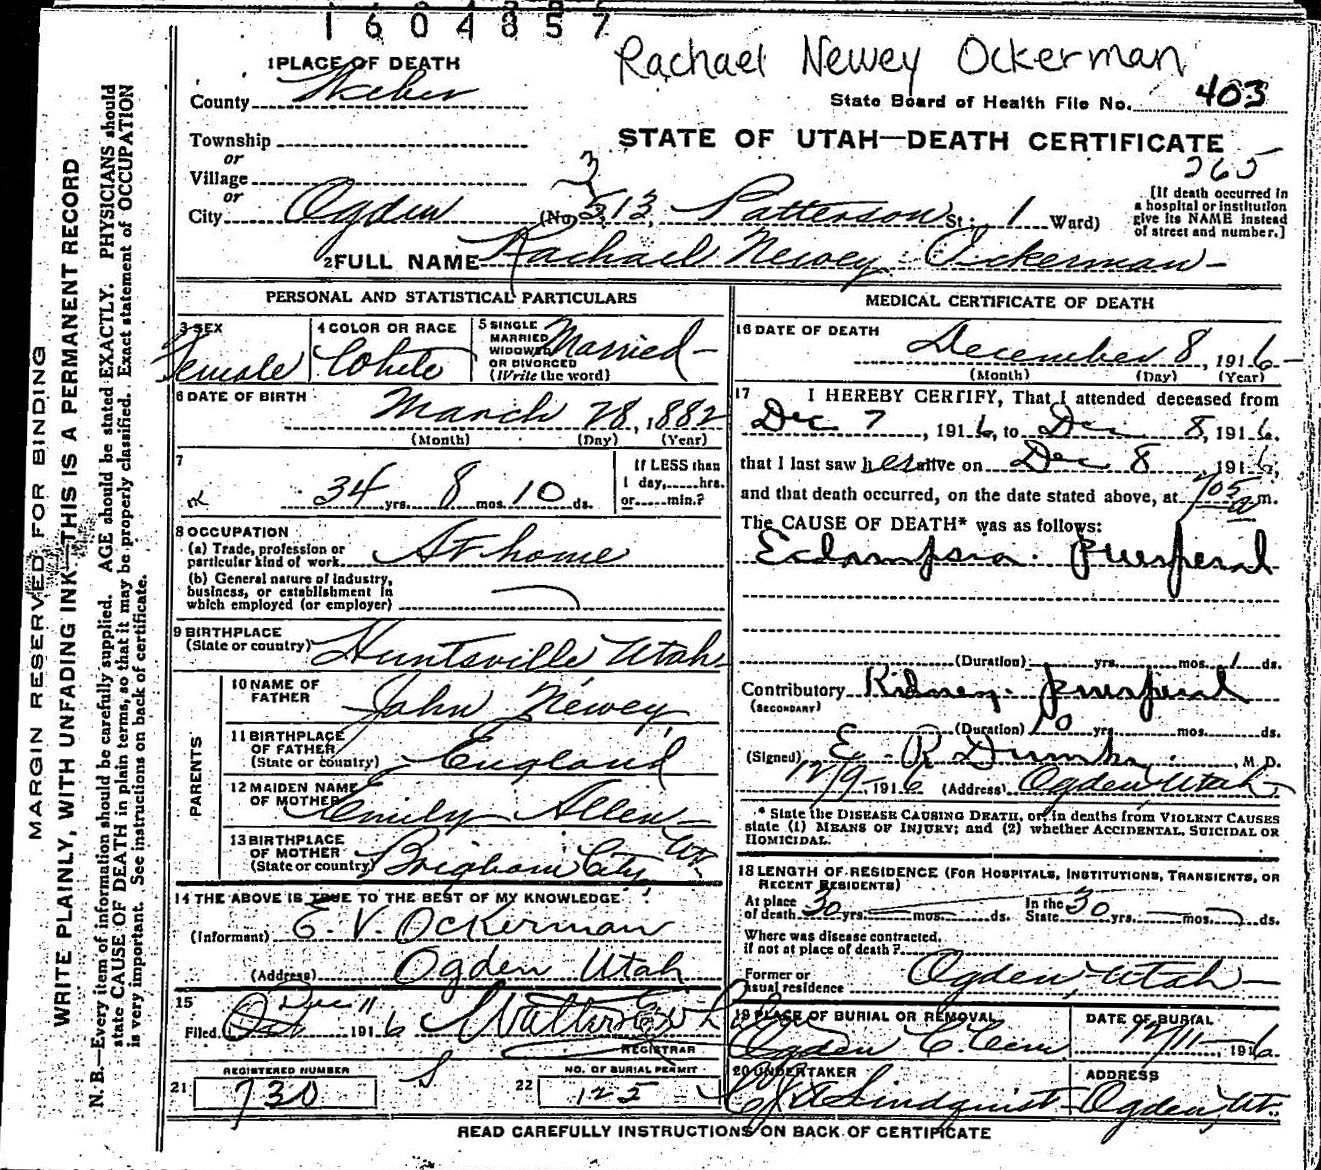 1604857
Rachael Newey Ockerman
1 PLACE OF DEATH
County Weber
State Board of Health File No. 403
Township
STATE OF UTAH—DEATH CERTIFICATE
or
265
Village
or
City Ogden (No. 313 Patterson St; 1 Ward)
[If death occurred in a hospital or institution give its NAME instead of street and number.]
2 FULL NAME Rachael Newey Ockerman
PERSONAL AND STATISTICAL PARTICULARS
3 SEX Female
4 COLOR OR RACE White
5 SINGLE MARRIED WIDOWED OR DIVORCED (Write the word) Married
6 DATE OF BIRTH March 28, 1882
(Month) (Day) (Year)
7 34 yrs. 8 mos. 10 ds.
If LESS than 1 day,.....hrs. or.....min.?
8 OCCUPATION
(a) Trade, profession or particular kind of work At home
(b) General nature of industry, business, or establishment in which employed (or employer)
9 BIRTHPLACE (State or country) Huntsville Utah
PARENTS
10 NAME OF FATHER John Newey
11 BIRTHPLACE OF FATHER (State or country) England
12 MAIDEN NAME OF MOTHER Emily Allen
13 BIRTHPLACE OF MOTHER (State or country) Brigham City Ut.
14 THE ABOVE IS TRUE TO THE BEST OF MY KNOWLEDGE
(Informant) E. V. Ockerman
(Address) Ogden Utah
15 Filed Dec 11 1916
REGISTRAR
21 REGISTERED NUMBER 730
22 NO. OF BURIAL PERMIT 125
MEDICAL CERTIFICATE OF DEATH
16 DATE OF DEATH December 8, 1916
(Month) (Day) (Year)
17 I HEREBY CERTIFY, That I attended deceased from
Dec 7, 1916, to Dec 8, 1916.
that I last saw her alive on Dec 8, 1916,
and that death occurred, on the date stated above, at 705 a m.
The CAUSE OF DEATH* was as follows:
Eclampsia. Puerperal
(Duration) yrs. mos. 1 ds.
Contributory Kidney puerperal
(SECONDARY)
(Duration) yrs. mos. ds.
(Signed) E. R. , M. D.
12/9, 1916 (Address) Ogden, Utah,
* State the DISEASE CAUSING DEATH, or, in deaths from VIOLENT CAUSES
state (1) MEANS OF INJURY; and (2) whether ACCIDENTAL, SUICIDAL OR
HOMICIDAL.
18 LENGTH OF RESIDENCE (FOR HOSPITALS, INSTITUTIONS, TRANSIENTS, OR
RECENT RESIDENTS)
At place of death 30 yrs. mos. ds. In the State 30 yrs. mos. ds.
Where was disease contracted, if not at place of death?
Former or usual residence Ogden, Utah
19 PLACE OF BURIAL OR REMOVAL Ogden C. Cem
DATE OF BURIAL 12/11 1916.
20 UNDERTAKER Lindquist
ADDRESS Ogden, Ut.
READ CAREFULLY INSTRUCTIONS ON BACK OF CERTIFICATE
MARGIN RESERVED FOR BINDING
WRITE PLAINLY, WITH UNFADING INK—THIS IS A PERMANENT RECORD
N. B.—Every item of information should be carefully supplied. AGE should be stated EXACTLY. PHYSICIANS should
state CAUSE OF DEATH in plain terms, so that it may be properly classified. Exact statement of OCCUPATION
is very important. See instructions on back of certificate.